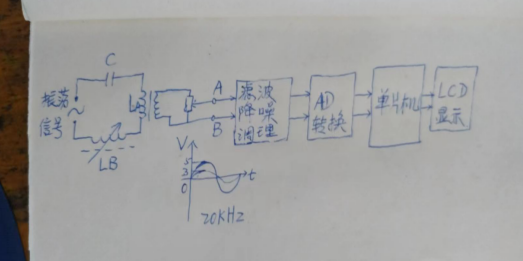 C
振荡
信号
LA
LB
A
B
滤波
降噪
调理
AD
转换
单片机
LCD
显示
V
5
3
0
t
20KHz